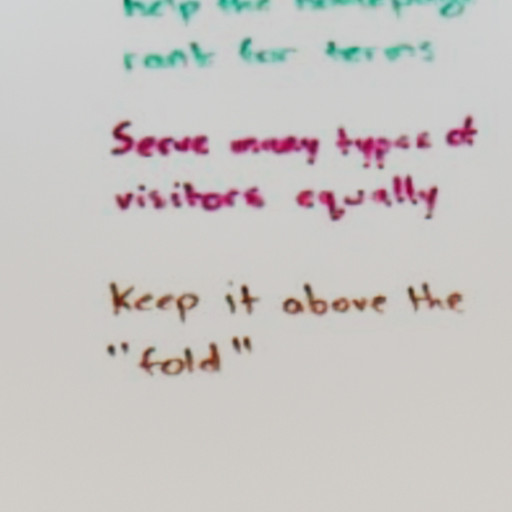 help the homepage
rank for terms
Serve many types of
visitors equally
Keep it above the
"fold"